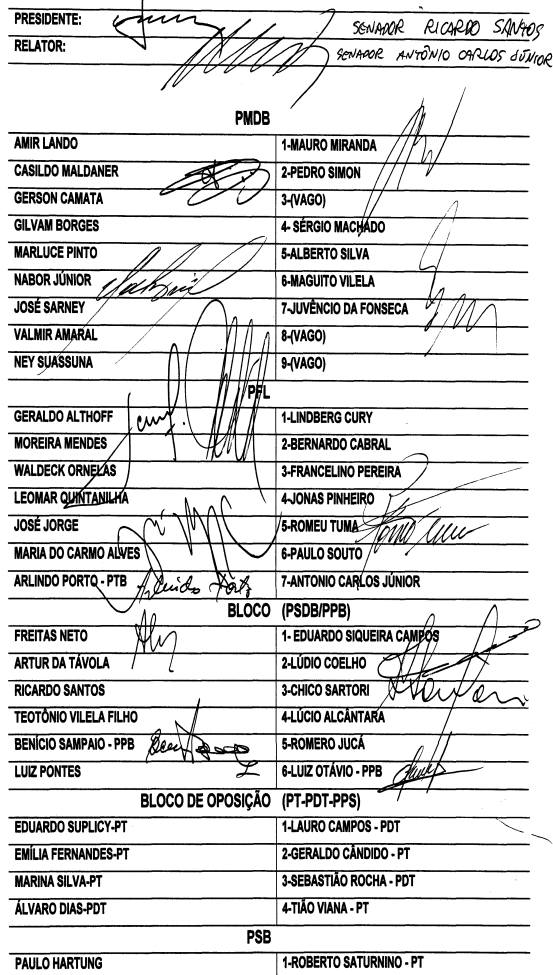 PRESIDENTE: SENADOR RICARDO SANTOS
RELATOR: SENADOR ANTÔNIO CARLOS JÚNIOR
PMDB
AMIR LANDO 1-MAURO MIRANDA
CASILDO MALDANER 2-PEDRO SIMON
GERSON CAMATA 3-(VAGO)
GILVAM BORGES 4- SÉRGIO MACHADO
MARLUCE PINTO 5-ALBERTO SILVA
NABOR JÚNIOR 6-MAGUITO VILELA
JOSÉ SARNEY 7-JUVÊNCIO DA FONSECA
VALMIR AMARAL 8-(VAGO)
NEY SUASSUNA 9-(VAGO)
PFL
GERALDO ALTHOFF 1-LINDBERG CURY
MOREIRA MENDES 2-BERNARDO CABRAL
WALDECK ORNELAS 3-FRANCELINO PEREIRA
LEOMAR QUINTANILHA 4-JONAS PINHEIRO
JOSÉ JORGE 5-ROMEU TUMA
MARIA DO CARMO ALVES 6-PAULO SOUTO
ARLINDO PORTO - PTB Arlindo Porto 7-ANTONIO CARLOS JÚNIOR
BLOCO (PSDB/PPB)
FREITAS NETO 1- EDUARDO SIQUEIRA CAMPOS
ARTUR DA TÁVOLA 2-LÚDIO COELHO
RICARDO SANTOS 3-CHICO SARTORI
TEOTÔNIO VILELA FILHO 4-LÚCIO ALCÂNTARA
BENÍCIO SAMPAIO - PPB 5-ROMERO JUCÁ
LUIZ PONTES 6-LUIZ OTÁVIO - PPB
BLOCO DE OPOSIÇÃO (PT-PDT-PPS)
EDUARDO SUPLICY-PT 1-LAURO CAMPOS - PDT
EMÍLIA FERNANDES-PT 2-GERALDO CÂNDIDO - PT
MARINA SILVA-PT 3-SEBASTIÃO ROCHA - PDT
ÁLVARO DIAS-PDT 4-TIÃO VIANA - PT
PSB
PAULO HARTUNG 1-ROBERTO SATURNINO - PT